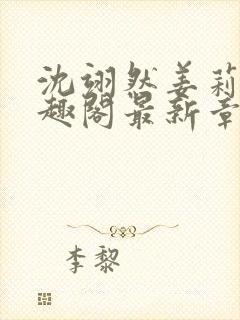 沈翊然姜莉
趣阁最新章
李黎